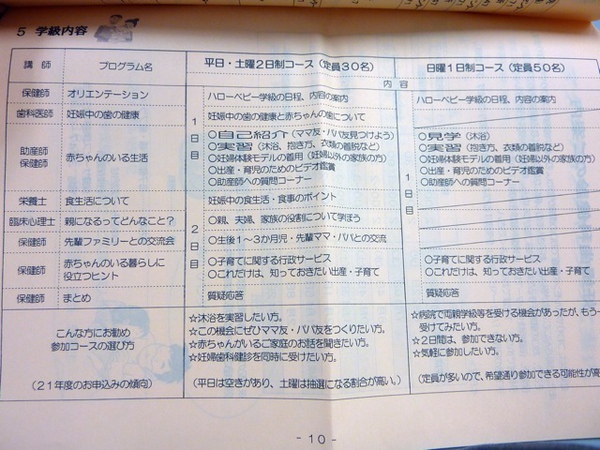 5 学級内容
講師 プログラム名 平日・土曜2日制コース(定員30名) 日曜1日制コース(定員50名)
内容
保健師 オリエンテーション ハローベビー学級の日程、内容の案内 ハローベビー学級の日程、内容の案内
歯科医師 妊娠中の歯の健康 妊娠中の歯の健康と赤ちゃんの歯について
1日目
助産師
保健師
赤ちゃんのいる生活
○自己紹介(ママ友・パパ友見つけよう)
○実習(沐浴、抱き方、衣類の着脱など)
○妊婦体験モデルの着用(妊婦以外の家族の方)
○出産・育児のためのビデオ鑑賞
○助産師への質問コーナー
1日目
○見学(沐浴)
○実習(抱き方、衣類の着脱など)
○妊婦体験モデルの着用(妊婦以外の家族の方)
○出産・育児のためのビデオ鑑賞
○助産師への質問コーナー
栄養士 食生活について 妊娠中の食生活・食事のポイント
2日目
臨床心理士 親になるってどんなこと? ○親、夫婦、家族の役割について学ぼう
保健師 先輩ファミリーとの交流会 ○生後1~3か月児・先輩ママ・パパとの交流
保健師
赤ちゃんのいる暮らしに
役立つヒント
○子育てに関する行政サービス
○これだけは、知っておきたい出産・子育て
○子育てに関する行政サービス
○これだけは、知っておきたい出産・子育て
保健師 まとめ 質疑応答 質疑応答
こんな方にお勧め
参加コースの選び方
(21年度のお申込みの傾向)
☆沐浴を実習したい方。
☆この機会にぜひママ友・パパ友をつくりたい方。
☆赤ちゃんがいるご家庭のお話を聞きたい方。
☆妊婦歯科健診を同時に受けたい方。
(平日は空きがあり、土曜は抽選になる割合が高い。)
☆病院で両親学級等を受ける機会があったが、もう一
受けてみたい方。
☆2日間は、参加できない方。
☆気軽に参加したい方。
(定員が多いので、希望通り参加できる可能性が高
- 10 -